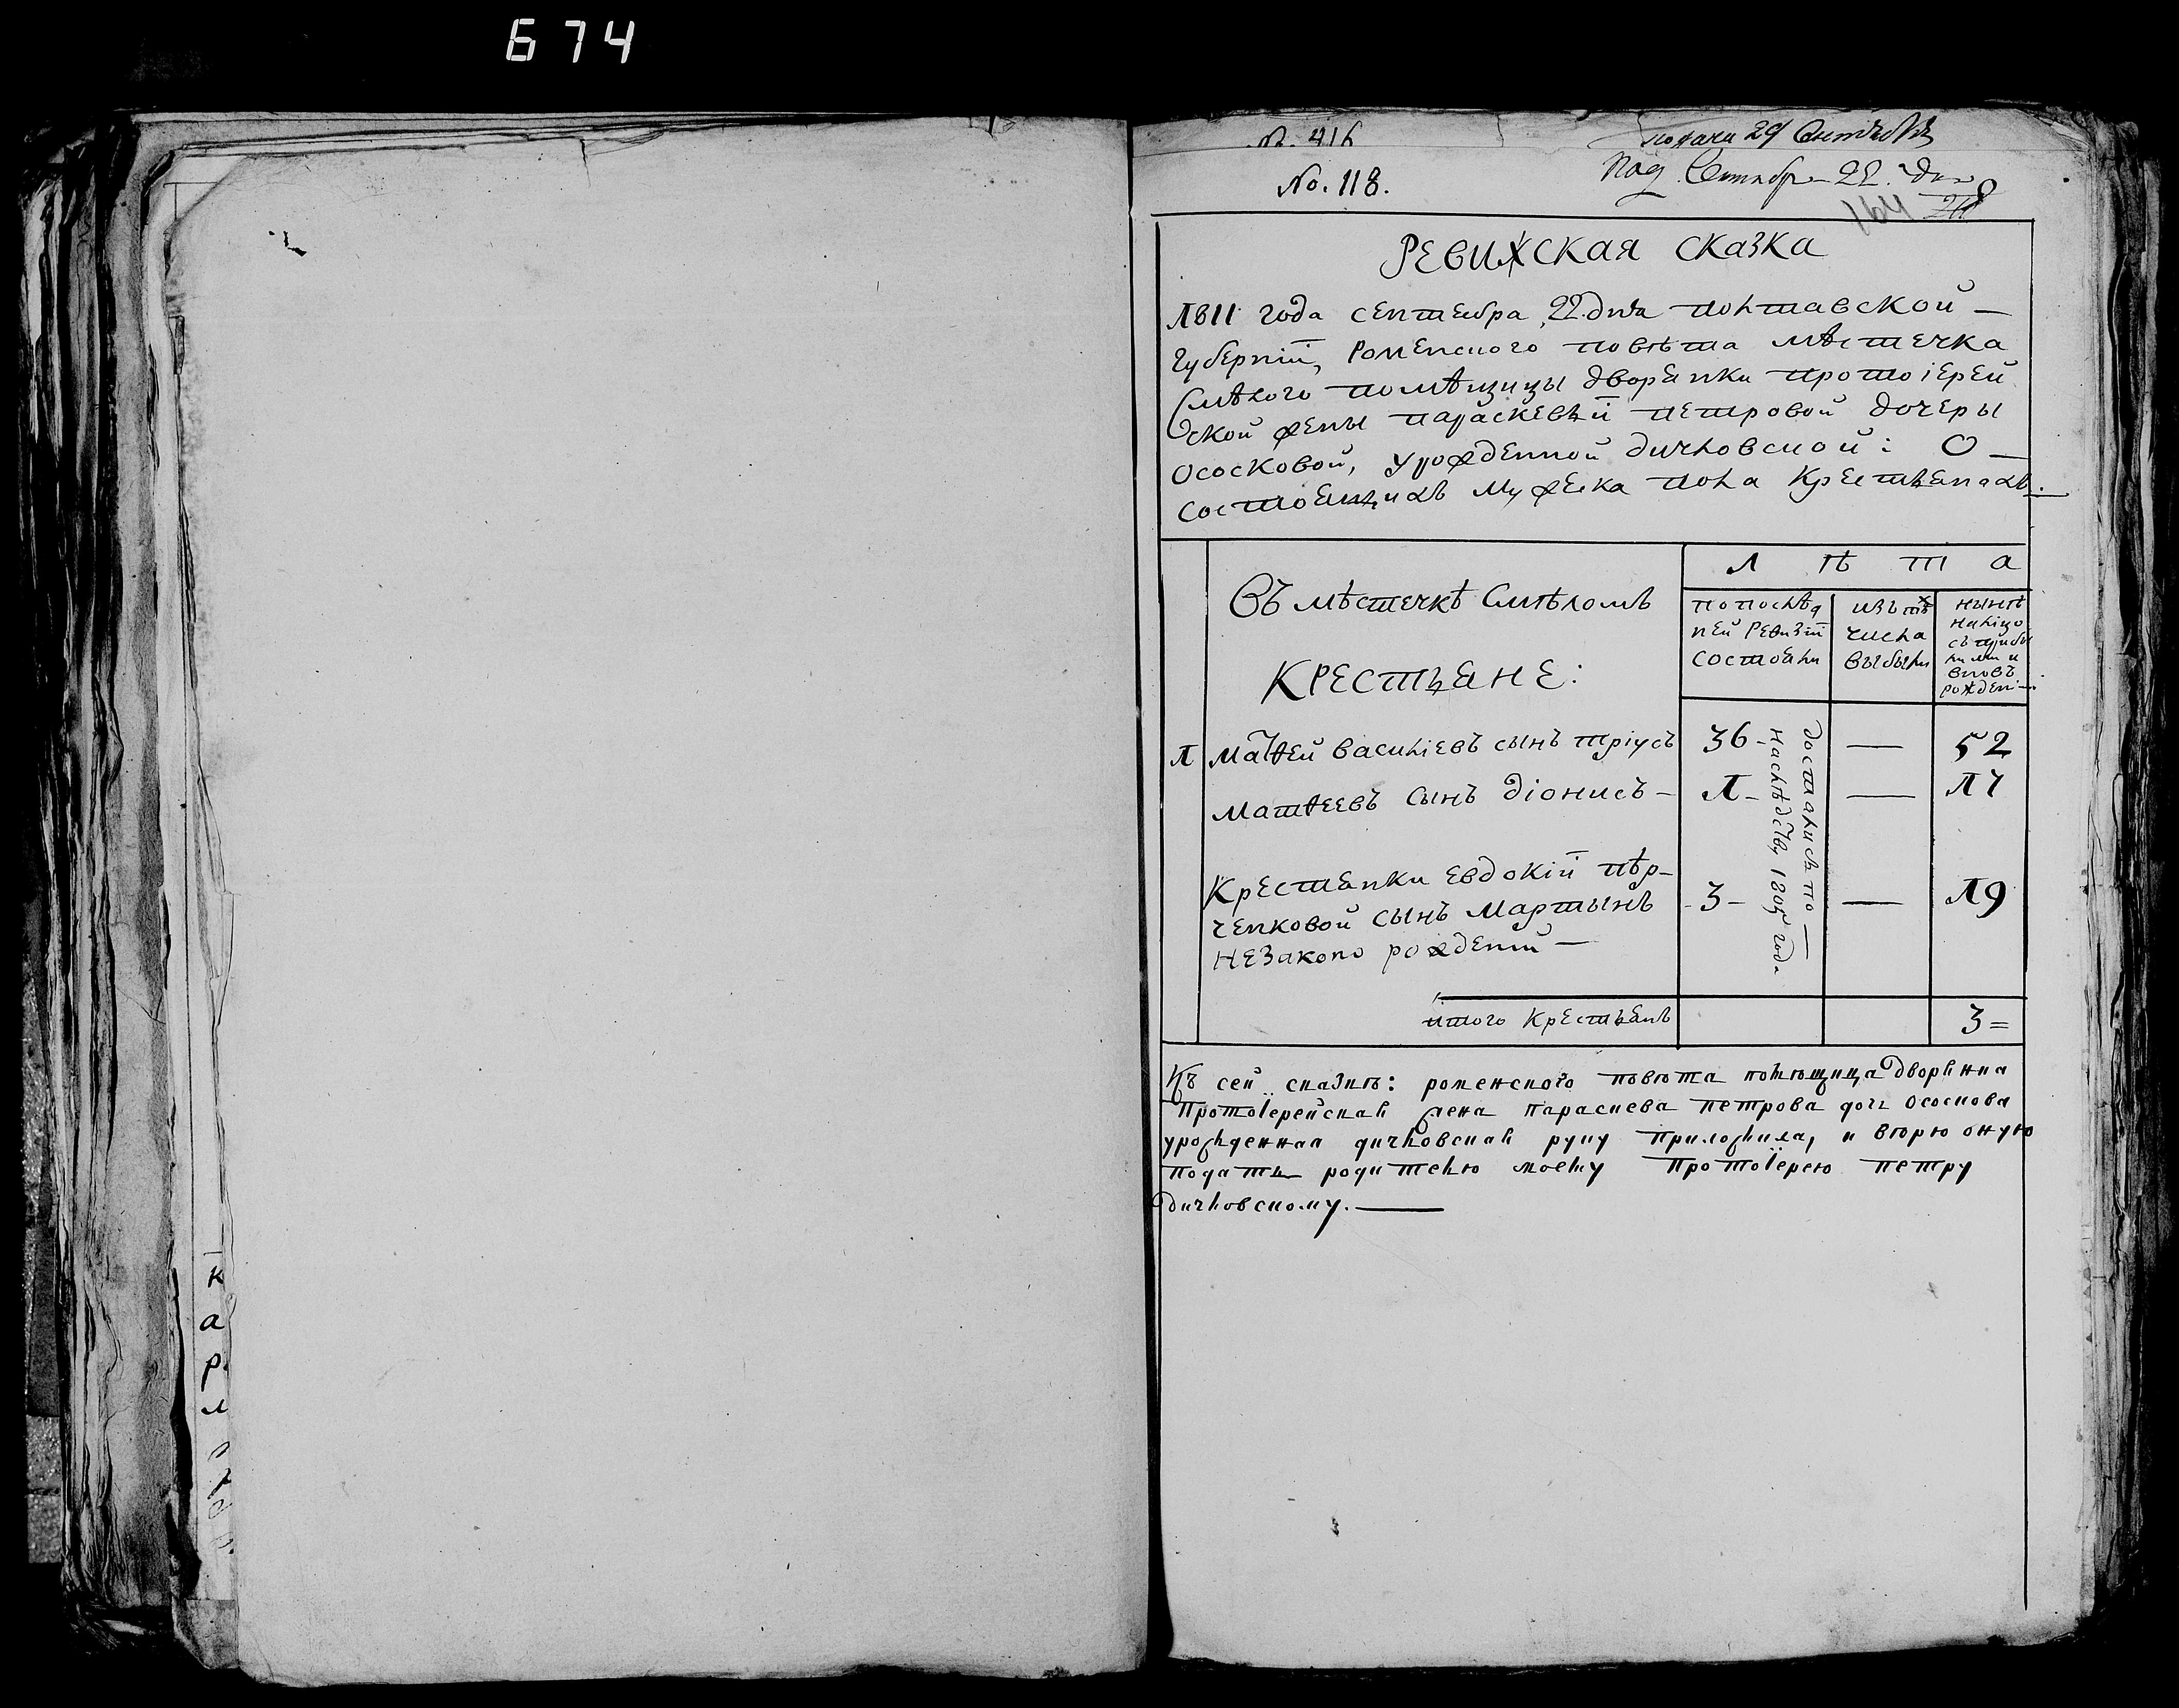 674
№. 416
подачи 29 Сентября
No. 118.
Под Сентябр 22. дня
164
РЕВИЖСКАЯ СКАЗКА
1811 года сентебра 22. дня полтавской —
губерніи, роменского повѣта мѣстечка
Смѣлого помѣщицы дворянки протоіерей
ской жены параскевіи петровой дочеры
Ососковой, урожденной дичковской: О —
состоящихъ мужеска пола крестьянахъ.
Въ мѣстечкѣ Смѣломъ
КРЕСТЬЯНЕ:
Л ѣ т а
по послѣд
ней ревизіи
состояли
изъ тѣхъ
числа
выбыли
нынѣ
налицо
съ прибы
лыми и
вновь
рожден
1 Матѳей василіевъ сынъ тріусъ 36 — — 52
матѳеевъ сынъ діонисъ — 1 — — 17
Крестянки евдокіи пѣр-
ченковой сынъ мартынъ — 3 — — 19
незаконо рожденій —
достались по —
наслѣдству 1805 года
итого крестьянъ 3 =
Къ сей сказкѣ: роменского повѣта помѣщица дворянка
протоіерейская жена параскева петрова дочь ососкова
урожденная дичковская руку приложила, и вѣрю оную
подать родителю моему протоіерею петру
дичковскому. —
к
а
р
л